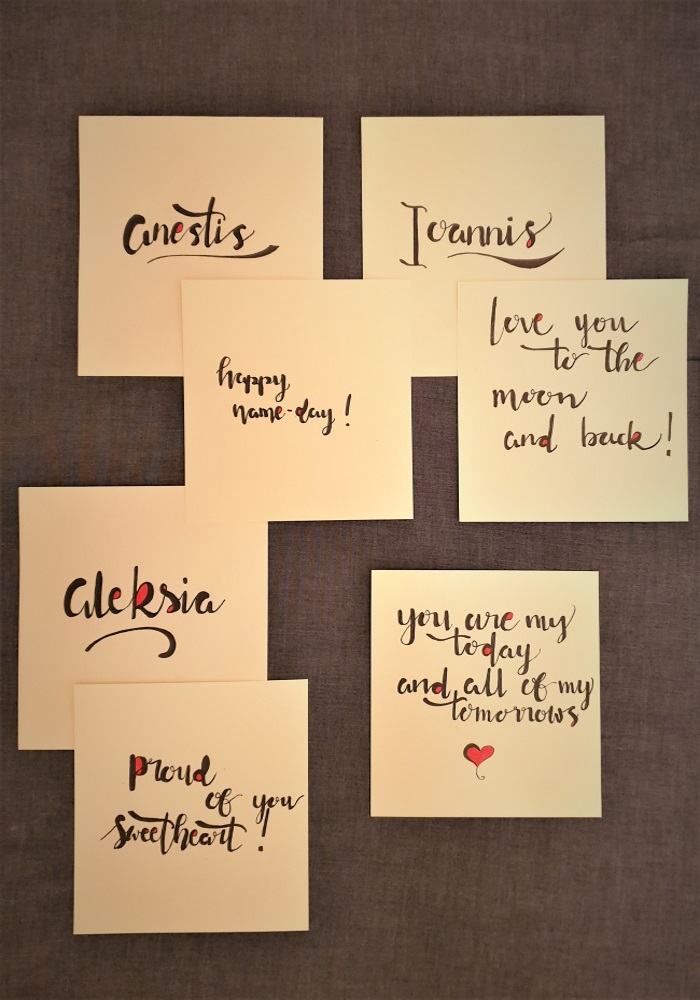 anestis
Ioannis
happy
name-day!
love you
to the
moon
and back!
aleksia
you are my
today
and all of my
tomorrows
proud
of you
sweetheart!